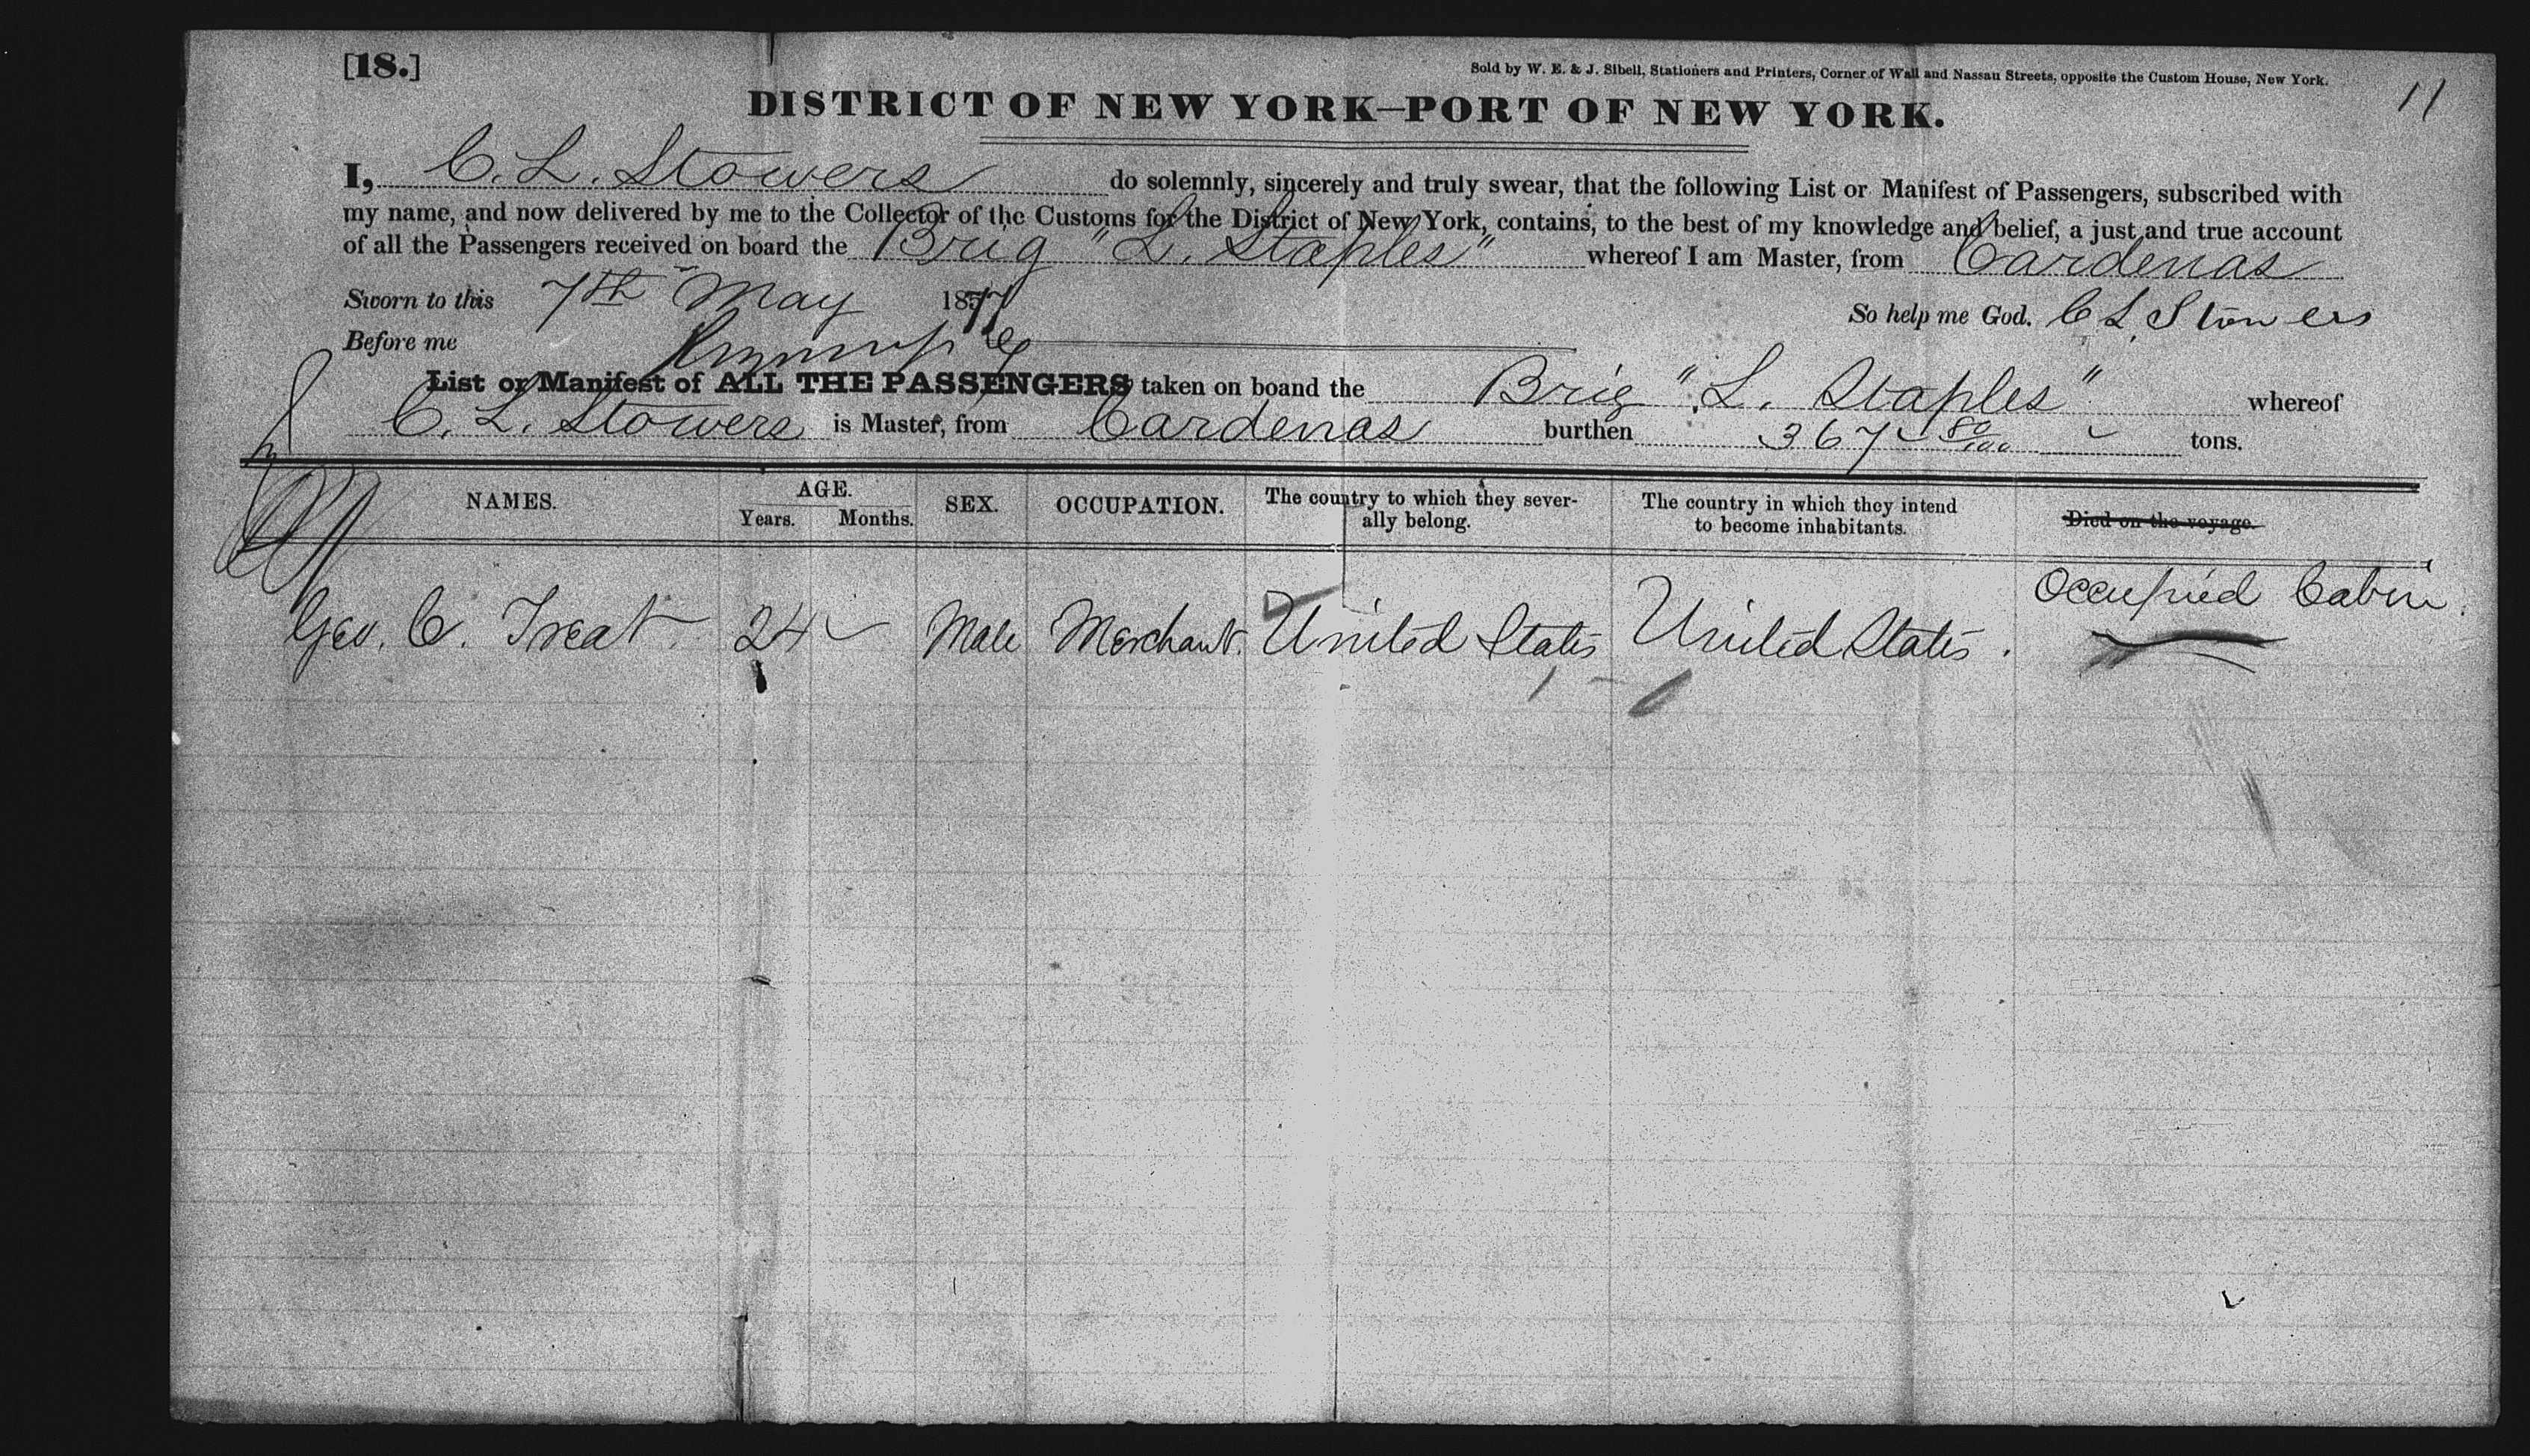 [18.]
Sold by W. E. & J. Sibell, Stationers and Printers, Corner of Wall and Nassau Streets, opposite the Custom House, New York.
11
DISTRICT OF NEW YORK—PORT OF NEW YORK.
I, C. L. Stowers do solemnly, sincerely and truly swear, that the following List or Manifest of Passengers, subscribed with
my name, and now delivered by me to the Collector of the Customs for the District of New York, contains, to the best of my knowledge and belief, a just and true account
of all the Passengers received on board the Brig "L. Staples" whereof I am Master, from Cardenas
Sworn to this 7th May 1877 So help me God. C L Stowers
Before me
List or Manifest of ALL THE PASSENGERS taken on boand the Brig "L. Staples" whereof
C. L. Stowers is Master, from Cardenas burthen 367 80/100 tons.
NAMES. AGE. Years. Months. SEX. OCCUPATION. The country to which they sever- ally belong. The country in which they intend to become inhabitants. Died on the voyage.
Occupied Cabin.
Geo. C. Treat. 24 Male Merchant. United States United States.